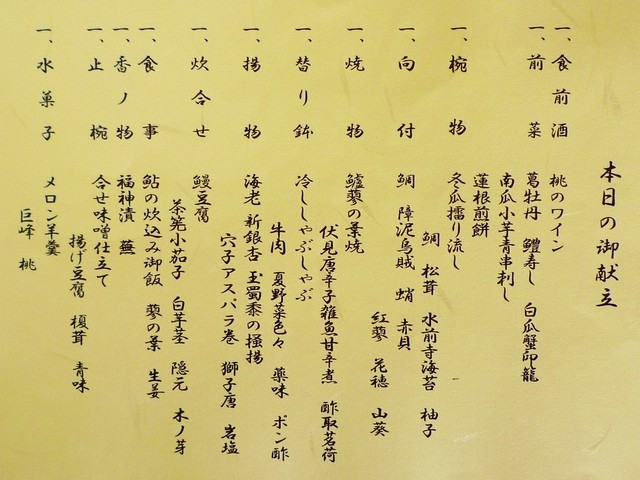 本日の御献立
一、食前酒 桃のワイン
一、前菜 葛牡丹 鱧寿し 白瓜蟹印籠
南瓜小芋青串刺し
蓮根煎餅
一、椀物 冬瓜擂り流し
鯛 松茸 水前寺海苔 柚子
一、向付 鯛 障泥烏賊 蛸 赤貝
紅蓼 花穂 山葵
一、焼物 鱸蓼の葉焼
伏見唐辛子雑魚甘辛煮 酢取茗荷
一、替り鉢 冷ししゃぶしゃぶ
牛肉 夏野菜色々 薬味 ポン酢
一、揚物 海老 新銀杏 玉蜀黍の掻揚
穴子アスパラ巻 獅子唐 岩塩
一、炊合せ 鰻豆腐
茶筅小茄子 白芋茎 隠元 木ノ芽
一、食事 鮎の炊込み御飯 蓼の葉 生姜
一、香ノ物 福神漬 蕪
一、止椀 合せ味噌仕立て
揚げ豆腐 榎茸 青味
一、水菓子 メロン羊羹
巨峰 桃